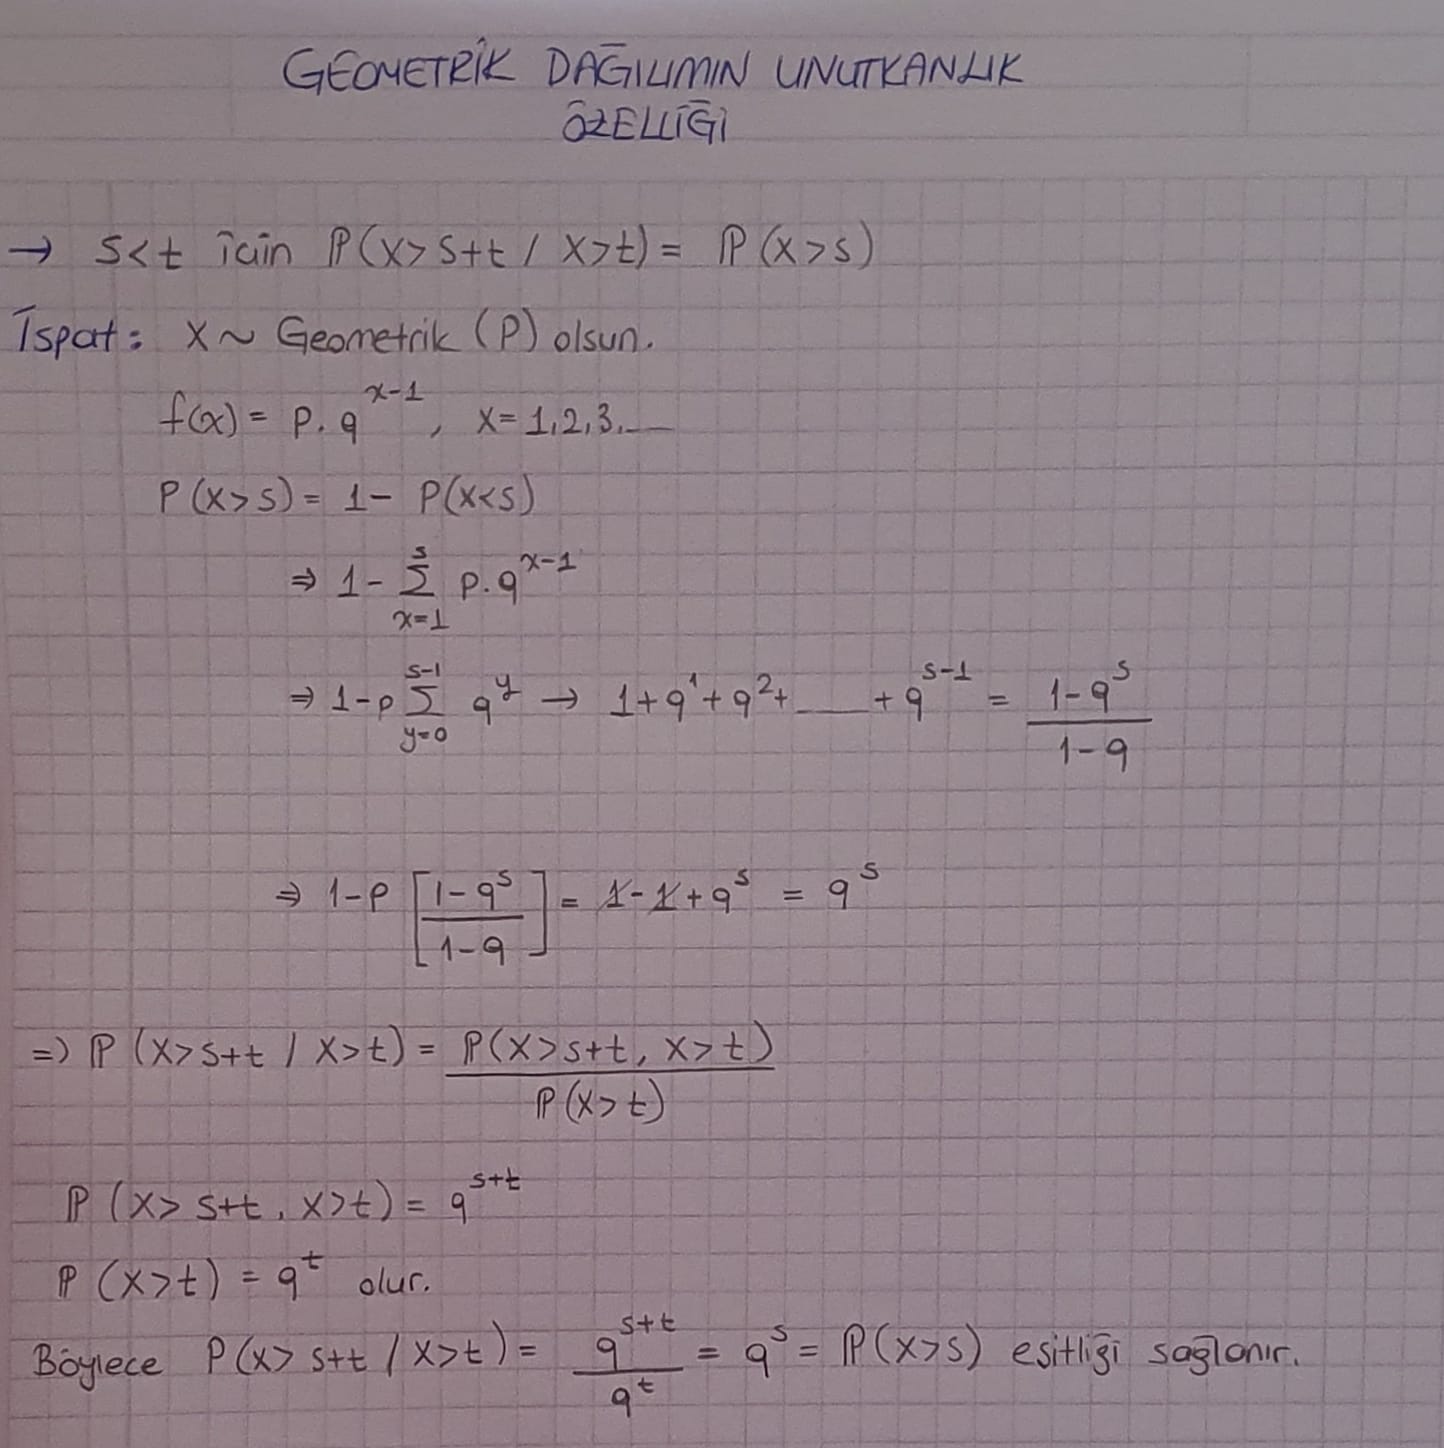 GEOMETRİK DAĞILIMIN UNUTKANLIK
ÖZELLİĞİ
→ s<t için ℙ(X>s+t / X>t) = ℙ(X>s)
İspat: X ~ Geometrik (P) olsun.
f(x) = p.q^{x-1}, x=1,2,3,...
P(X>s) = 1 - P(X<s)
⇒ 1 - \sum_{x=1}^{s} p.q^{x-1}
⇒ 1-p \sum_{y=0}^{s-1} q^y → 1+q^1+q^2+ ... +q^{s-1} = \frac{1-q^s}{1-q}
⇒ 1-p [\frac{1-q^s}{1-q}] = 1-1+q^s = q^s
⇒ ℙ(X>s+t / X>t) = \frac{ℙ(X>s+t, X>t)}{ℙ(X>t)}
ℙ(X>s+t, X>t) = q^{s+t}
ℙ(X>t) = q^t olur.
Böylece P(X>s+t / X>t) = \frac{q^{s+t}}{q^t} = q^s = ℙ(X>s) esitliği sağlanır.